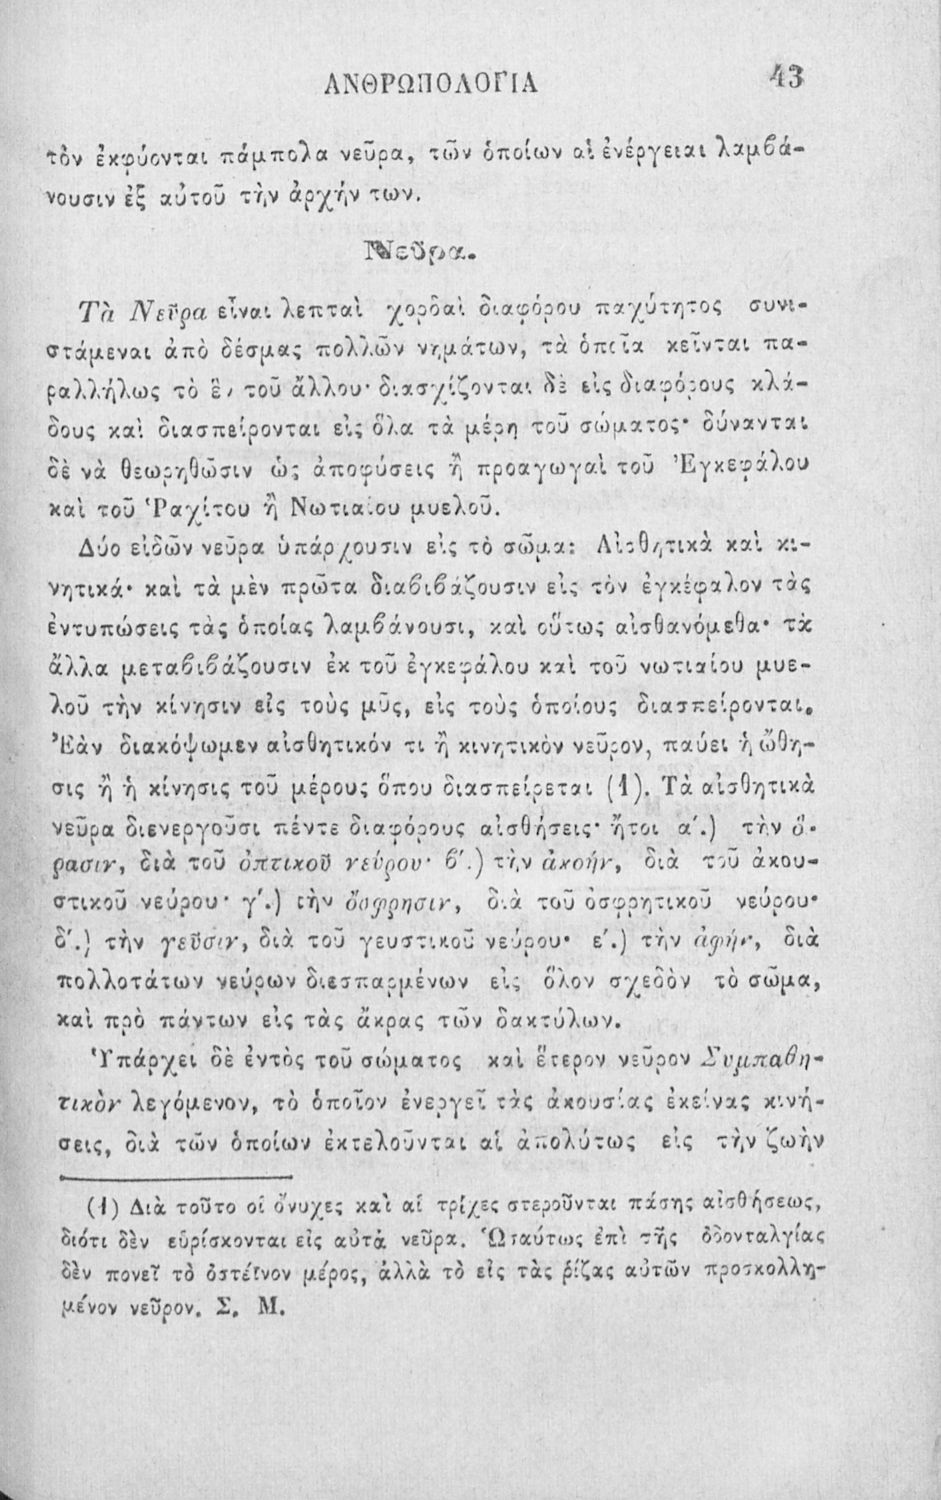 ΑΝΘΡΩΠΟΛΟΓΙΑ 43
τὸν ἐκφύονται πάμπολα νεῦρα, τῶν ὁποίων αἱ ἐνέργειαι λαμβά-
νουσιν ἐξ αὐτοῦ τὴν ἀρχήν των.
Νεῦρα.
Τὰ Νεῦρα εἶναι λεπταὶ χορδαὶ διαφόρου παχύτητος συνι-
στάμεναι ἀπὸ δέσμας πολλῶν νημάτων, τὰ ὁποῖα κεῖνται πα-
ραλλήλως τὸ ἓν τοῦ ἄλλου· διασχίζονται δὲ εἰς διαφόρους κλά-
δους καὶ διασπείρονται εἰς ὅλα τὰ μέρη τοῦ σώματος· δύνανται
δὲ νὰ θεωρηθῶσιν ὡς ἀποφύσεις ἢ προαγωγαὶ τοῦ Ἐγκεφάλου
καὶ τοῦ Ῥαχίτου ἢ Νωτιαίου μυελοῦ.
Δύο εἰδῶν νεῦρα ὑπάρχουσιν εἰς τὸ σῶμα: Αἰσθητικὰ καὶ κι-
νητικά· καὶ τὰ μὲν πρῶτα διαβιβάζουσιν εἰς τὸν ἐγκέφαλον τὰς
ἐντυπώσεις τὰς ὁποίας λαμβάνουσι, καὶ οὕτως αἰσθανόμεθα· τὰ
ἄλλα μεταβιβάζουσιν ἐκ τοῦ ἐγκεφάλου καὶ τοῦ νωτιαίου μυε-
λοῦ τὴν κίνησιν εἰς τοὺς μῦς, εἰς τοὺς ὁποίους διασπείρονται.
Ἐὰν διακόψωμεν αἰσθητικόν τι ἢ κινητικὸν νεῦρον, παύει ἡ ὤθη-
σις ἢ ἡ κίνησις τοῦ μέρους ὅπου διασπείρεται (1). Τὰ αἰσθητικὰ
νεῦρα διενεργοῦσι πέντε διαφόρους αἰσθήσεις· ἤτοι α΄.) τὴν ὅ-
ρασιν, διὰ τοῦ ὀπτικοῦ νεύρου· β΄.) τὴν ἀκοήν, διὰ τοῦ ἀκου-
στικοῦ νεύρου· γ΄.) τὴν ὄσφρησιν, διὰ τοῦ ὀσφρητικοῦ νεύρου·
δ΄.) τὴν γεῦσιν, διὰ τοῦ γευστικοῦ νεύρου· ε΄.) τὴν ἁφήν, διὰ
πολλοτάτων νεύρων διεσπαρμένων εἰς ὅλον σχεδὸν τὸ σῶμα,
καὶ πρὸ πάντων εἰς τὰς ἄκρας τῶν δακτύλων.
Ὑπάρχει δὲ ἐντὸς τοῦ σώματος καὶ ἕτερον νεῦρον Συμπαθη-
τικὸν λεγόμενον, τὸ ὁποῖον ἐνεργεῖ τὰς ἀκουσίας ἐκείνας κινή-
σεις, διὰ τῶν ὁποίων ἐκτελοῦνται αἱ ἀπολύτως εἰς τὴν ζωὴν
(1) Διὰ τοῦτο οἱ ὄνυχες καὶ αἱ τρίχες στεροῦνται πάσης αἰσθήσεως,
διότι δὲν εὑρίσκονται εἰς αὐτὰ νεῦρα. Ὡσαύτως ἐπὶ τῆς ὀδονταλγίας
δὲν πονεῖ τὸ ὀστέϊνον μέρος, ἀλλὰ τὸ εἰς τὰς ῥίζας αὐτῶν προσκολλη-
μένον νεῦρον. Σ. Μ.